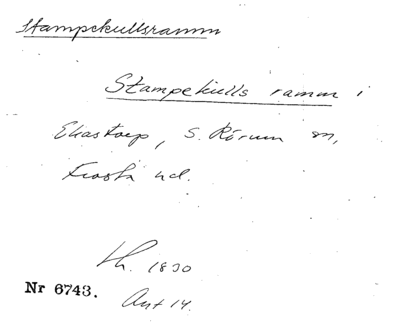 Stampekullsramm
Stampekulls ramm i
Ekastorp, S. Rörum sn,
Frosta hd.
Lh. 1830
Nr 6743.
Ant 14.